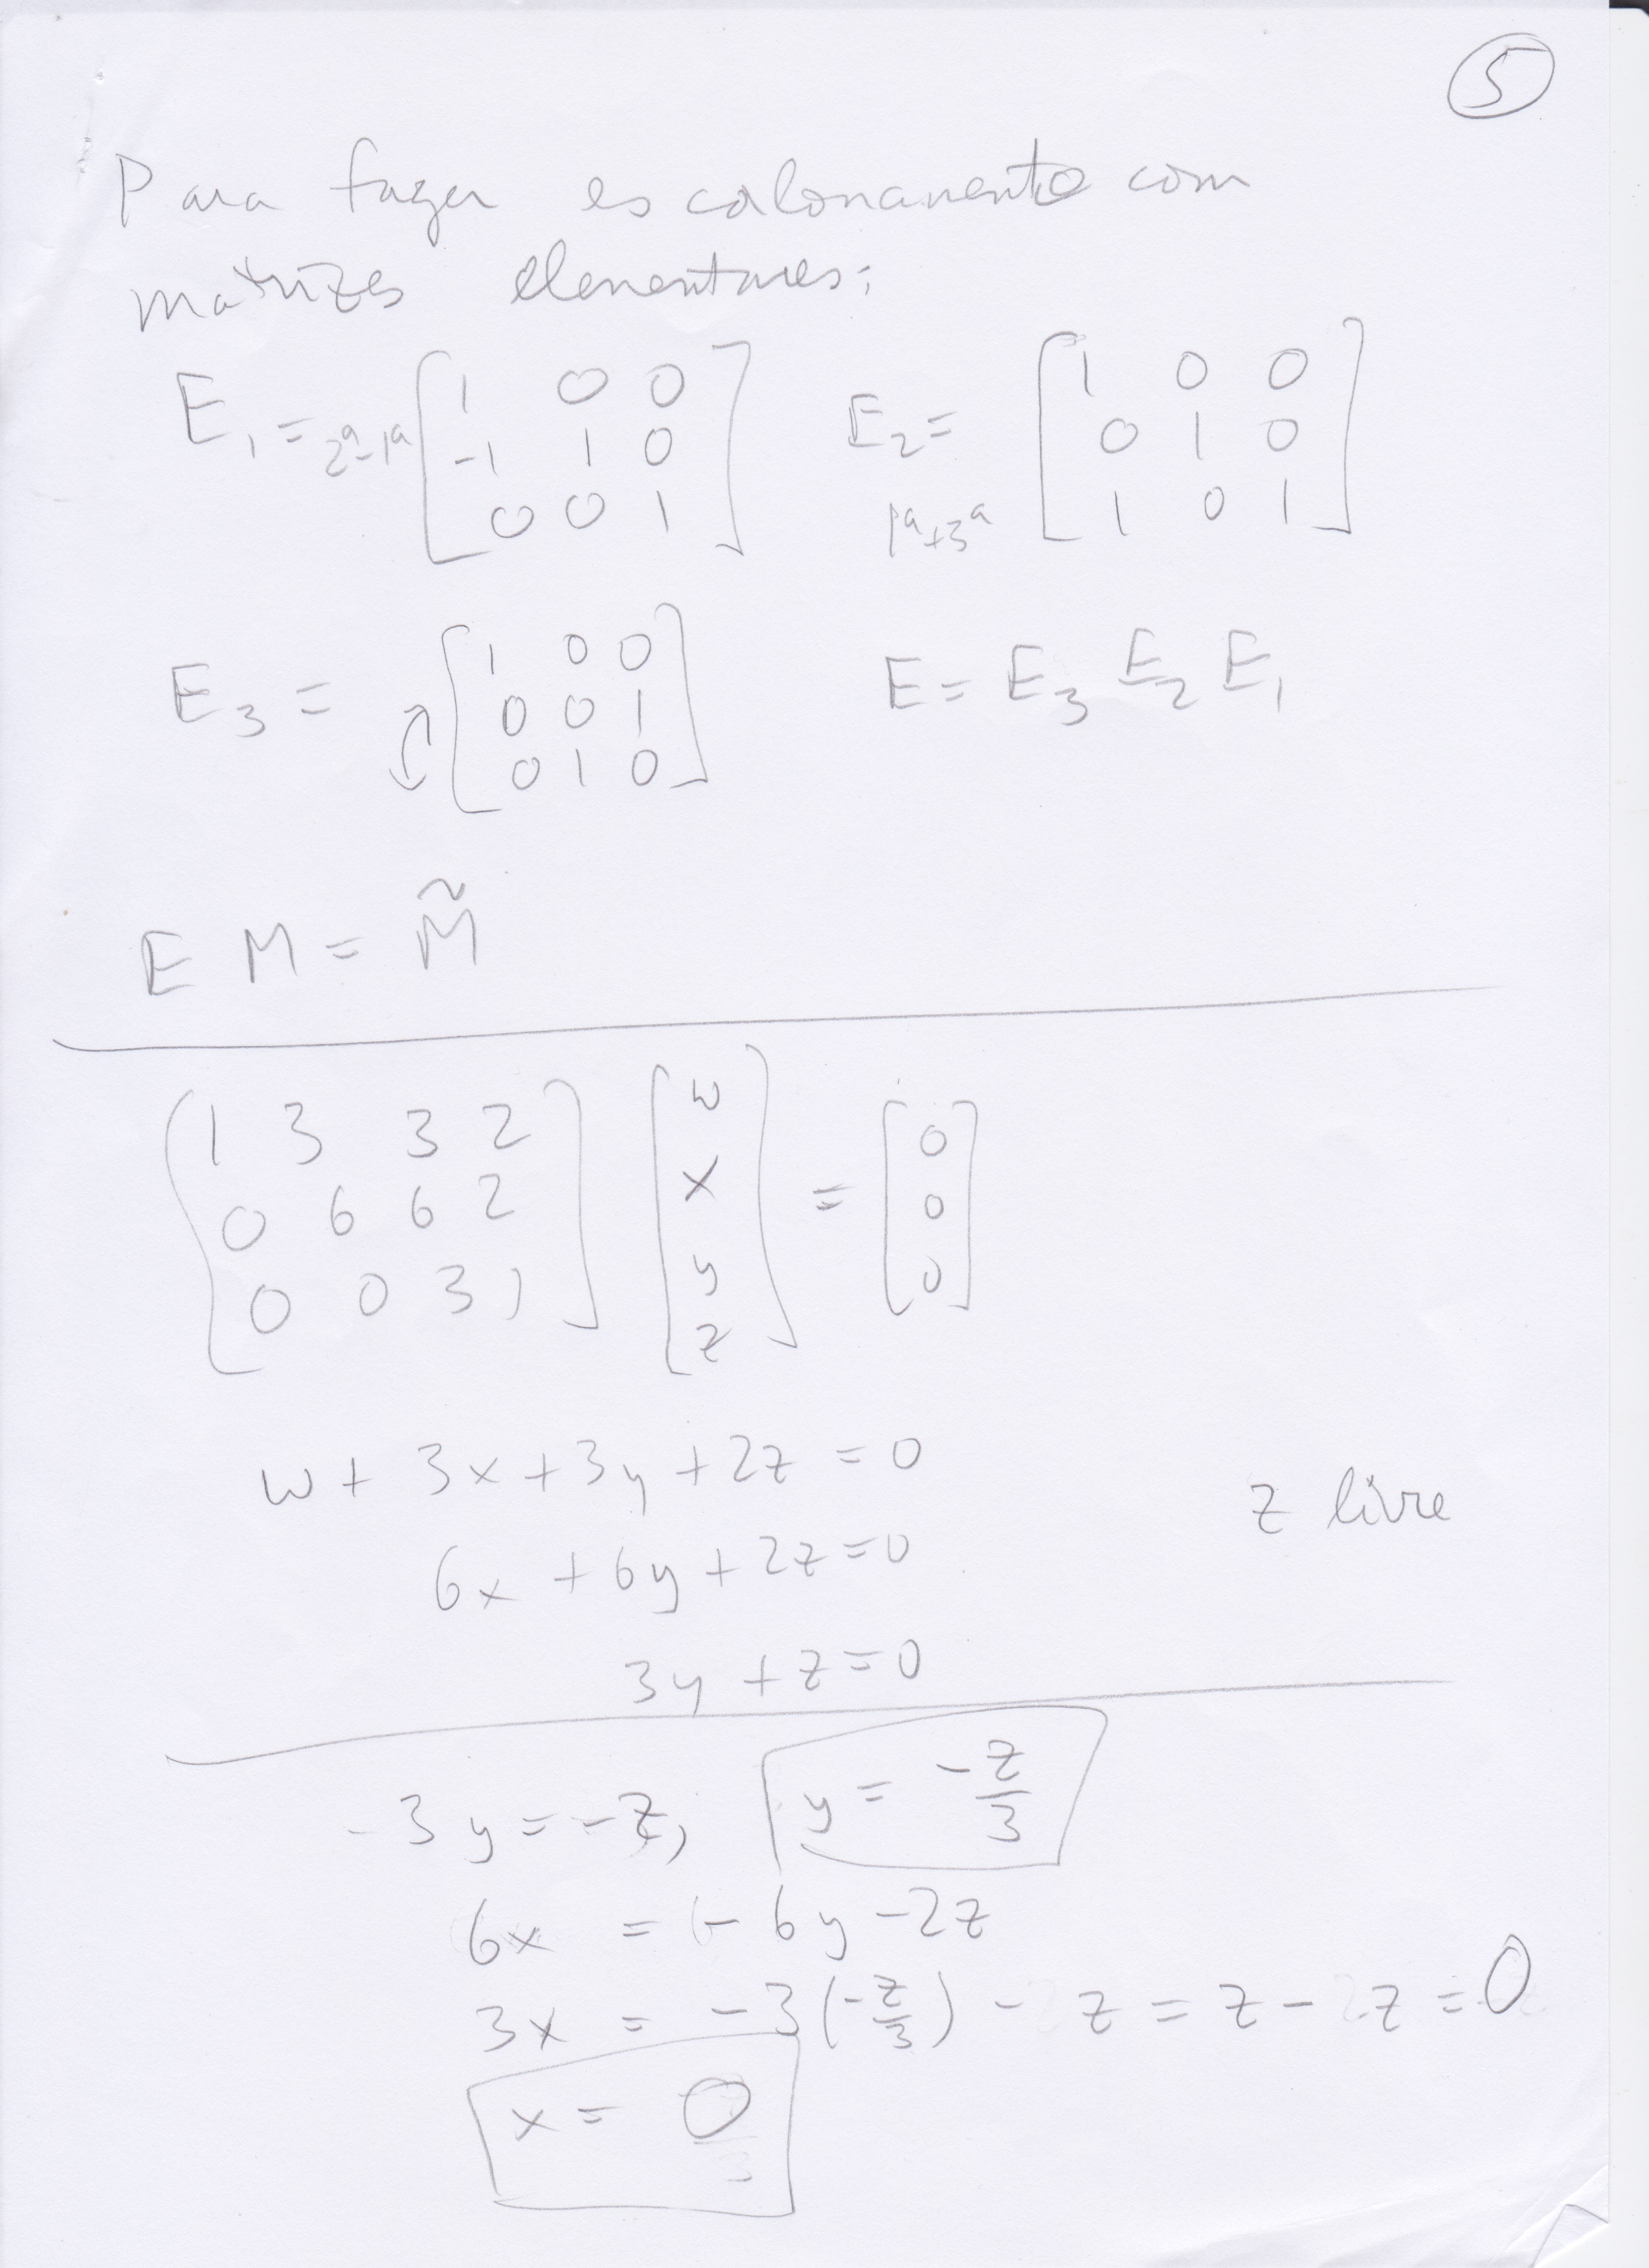 5
Para fazer escalonamento com
matrizes elementares:
E₁ = 2ª-1ª [1 0 0; -1 1 0; 0 0 1] E₂ = 1ª+3ª [1 0 0; 0 1 0; 1 0 1]
E₃ = [1 0 0; 0 0 1; 0 1 0] E = E₃ E₂ E₁
E M = M̃
[1 3 3 2; 0 6 6 2; 0 0 3 1] [w; x; y; z] = [0; 0; 0]
w + 3x + 3y + 2z = 0
z livre
6x + 6y + 2z = 0
3y + z = 0
-3y = -z, y = -z/3
6x = -6y - 2z
3x = -3(-z/3) - z = z - z = 0
x = 0